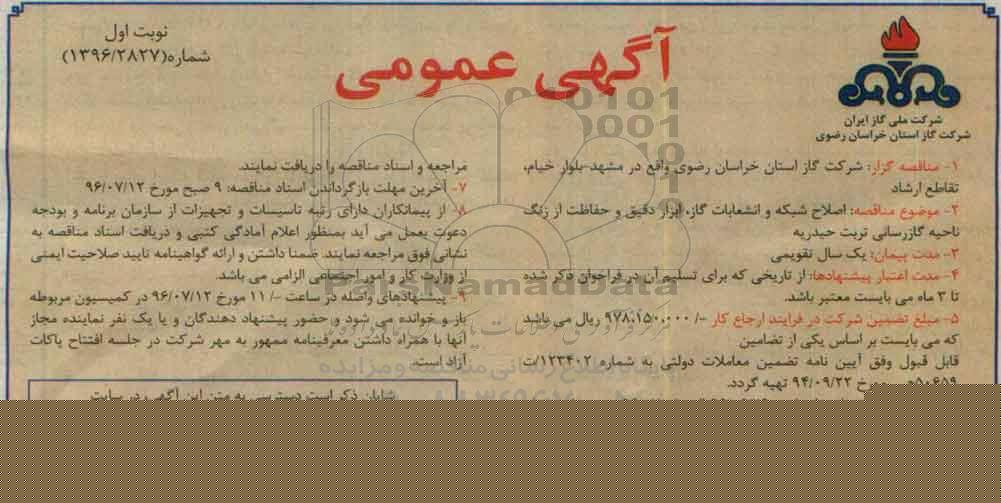 نوبت اول
شماره(۱۳۹۶/۲۸۲۷)
آگهی عمومی
شرکت ملی گاز ایران
شرکت گاز استان خراسان رضوی
۱- مناقصه گزار: شرکت گاز استان خراسان رضوی واقع در مشهد-بلوار خیام،
تقاطع ارشاد
۲- موضوع مناقصه: اصلاح شبکه و انشعابات گاز، ابزار دقیق و حفاظت از زنگ
ناحیه گازرسانی تربت حیدریه
۳- مدت پیمان: یک سال تقویمی
۴- مدت اعتبار پیشنهادها: از تاریخی که برای تسلیم آن در فراخوان ذکر شده
تا ۳ ماه می بایست معتبر باشد.
۵- مبلغ تضمین شرکت در فرایند ارجاع کار -/۹۷۸،۱۵۰،۰۰۰ ریال می باشد
که می بایست بر اساس یکی از تضامین
قابل قبول وفق آیین نامه تضمین معاملات دولتی به شماره ۱۲۳۴۰۲/ت
۵۰۶۵۹ه مورخ ۹۴/۰۹/۲۲ تهیه گردد.
مراجعه و اسناد مناقصه را دریافت نمایند.
۷- آخرین مهلت بازگرداندن اسناد مناقصه: ۹ صبح مورخ ۹۶/۰۷/۱۲
۸- از پیمانکاران دارای رتبه تاسیسات و تجهیزات از سازمان برنامه و بودجه
دعوت بعمل می آید بمنظور اعلام آمادگی کتبی و دریافت اسناد مناقصه به
نشانی فوق مراجعه نمایند. ضمنا داشتن و ارائه گواهینامه تایید صلاحیت ایمنی
از وزارت کار و امور اجتماعی الزامی می باشد.
۹- پیشنهادهای واصله در ساعت -/۱۱ مورخ ۹۶/۰۷/۱۲ در کمیسیون مربوطه
باز و خوانده می شود و حضور پیشنهاد دهندگان و یا یک نفر نماینده مجاز
آنها با همراه داشتن معرفینامه ممهور به مهر شرکت در جلسه افتتاح پاکات
آزاد است.
شایان ذکر است دسترسی به متن این آگهی در سایت
ParsNamadData